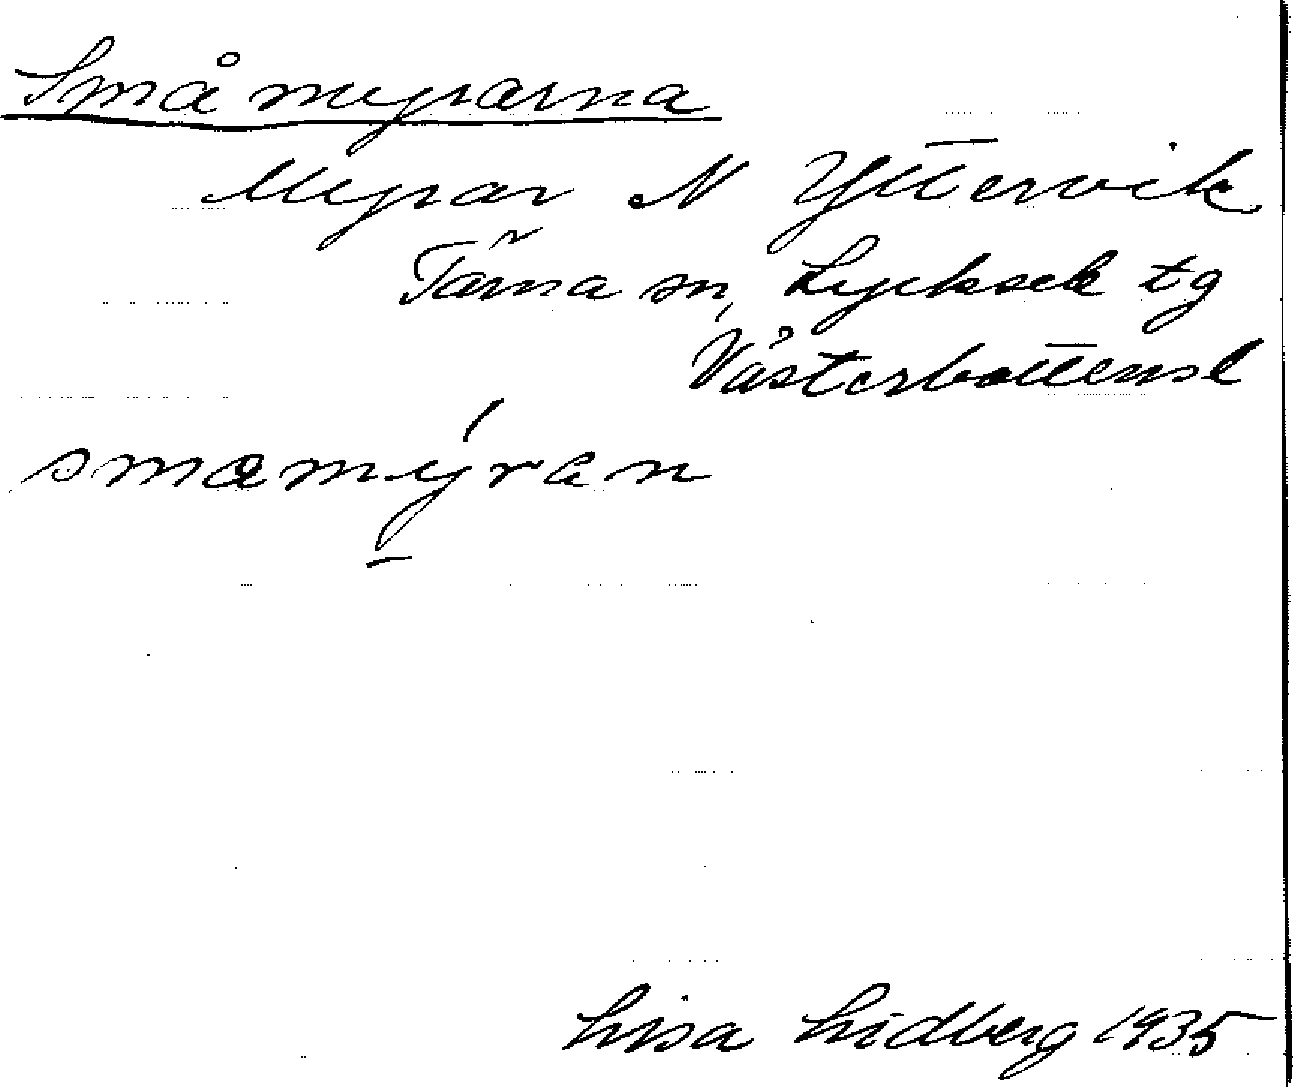 Småmyrarna
Myrar N Yttervik
Tärna sn, Lycksele tg
Västerbottens l
smamýran
Lisa Lidberg 1935